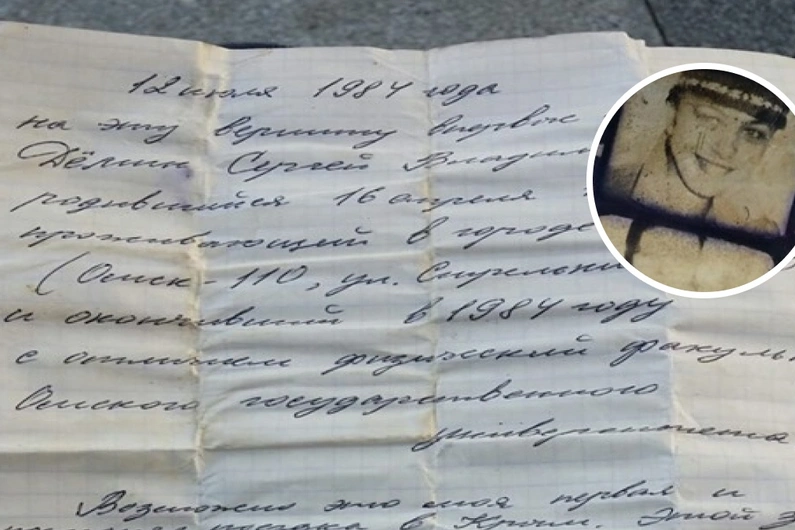 12 июля 1984 года
на эту вершину впервые
Дёмин Сергей Владими
родившийся 16 апреля
проживающий в городе
(Омск-110, ул.
и окончивший в 1984 году
с отличием физический факуль
Омского государственного
университета
Возможно это моя первая и
поездка в Крым. Этой з